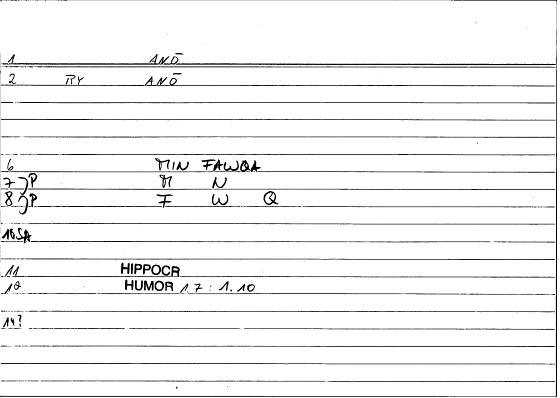 1 ANŌ
2 RY ANŌ
6 MIN FAWQA
7 P M N
8 P F W Q
10SA
11 HIPPOCR
10 HUMOR 17 : 1.10
14?